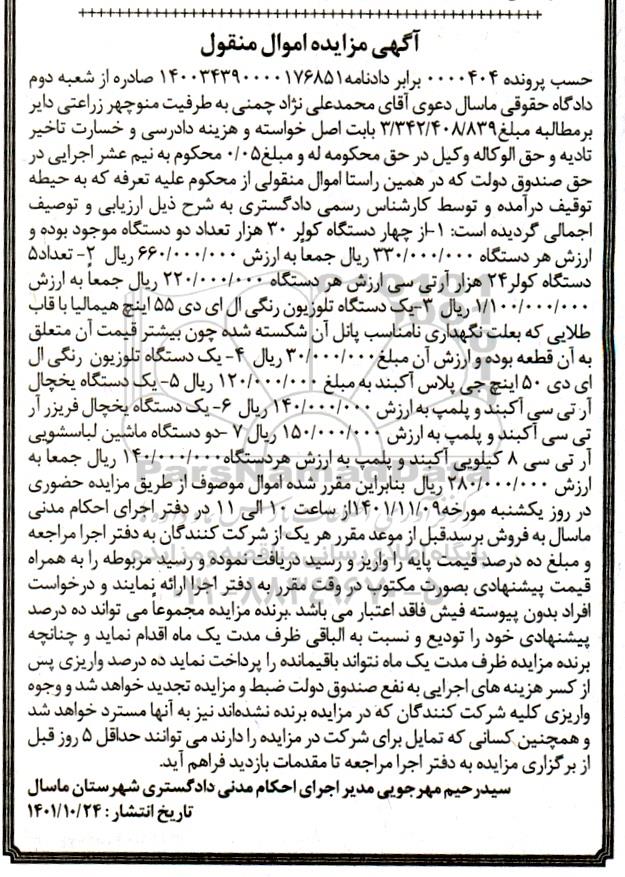 آگهی مزایده اموال منقول
حسب پرونده ۰۰۰۰۴۰۴ برابر دادنامه۱۴۰۰۳۴۳۹۰۰۰۰۱۷۶۸۵۱ صادره از شعبه دوم
دادگاه حقوقی ماسال دعوی آقای محمدعلی نژاد چمنی به طرفیت منوچهر زراعتی دایر
برمطالبه مبلغ۳/۳۴۲/۴۰۸/۸۳۹ بابت اصل خواسته و هزینه دادرسی و خسارت تاخیر
تادیه و حق الوکاله وکیل در حق محکومه له و مبلغ۰/۰۵ محکوم به نیم عشر اجرایی در
حق صندوق دولت که در همین راستا اموال منقولی از محکوم علیه تعرفه که به حیطه
توقیف درآمده و توسط کارشناس رسمی دادگستری به شرح ذیل ارزیابی و توصیف
اجمالی گردیده است: ۱-از چهار دستگاه کولر ۳۰ هزار تعداد دو دستگاه موجود بوده و
ارزش هر دستگاه ۳۳۰/۰۰۰/۰۰۰ ریال جمعاً به ارزش ۶۶۰/۰۰۰/۰۰۰ ریال ۲- تعداد۵
دستگاه کولر۲۴ هزار آرتی سی ارزش هر دستگاه ۲۲۰/۰۰۰/۰۰۰ ریال جمعاً به ارزش
۱/۱۰۰/۰۰۰/۰۰۰ ریال ۳-یک دستگاه تلوزیون رنگی ال ای دی ۵۵ اینچ هیمالیا با قاب
طلایی که بعلت نگهداری نامناسب پانل آن شکسته شده چون بیشتر قیمت آن متعلق
به آن قطعه بوده و ارزش آن مبلغ۳۰/۰۰۰/۰۰۰ ریال ۴- یک دستگاه تلوزیون رنگی ال
ای دی ۵۰ اینچ جی پلاس آکبند به مبلغ ۱۲۰/۰۰۰/۰۰۰ ریال ۵- یک دستگاه یخچال
آر تی سی آکبند و پلمپ به ارزش ۱۴۰/۰۰۰/۰۰۰ ریال ۶- یک دستگاه یخچال فریزر آر
تی سی آکبند و پلمپ به ارزش ۱۵۰/۰۰۰/۰۰۰ ریال ۷ -دو دستگاه ماشین لباسشویی
آر تی سی ۸ کیلویی آکبند و پلمپ به ارزش هردستگاه۱۴۰/۰۰۰/۰۰۰ ریال جمعا به
ارزش ۲۸۰/۰۰۰/۰۰۰ ریال بنابراین مقرر شده اموال موصوف از طریق مزایده حضوری
در روز یکشنبه مورخه۱۴۰۱/۱۱/۰۹از ساعت ۱۰ الی ۱۱ در دفتر اجرای احکام مدنی
ماسال به فروش برسد.قبل از موعد مقرر هر یک از شرکت کنندگان به دفتر اجرا مراجعه
و مبلغ ده درصد قیمت پایه را واریز و رسید دریافت نموده و رسید مربوطه را به همراه
قیمت پیشنهادی بصورت مکتوب در وقت مقرر به دفتر اجرا ارائه نمایند و درخواست
افراد بدون پیوسته فیش فاقد اعتبار می باشد .برنده مزایده مجموعاً می تواند ده درصد
پیشنهادی خود را تودیع و نسبت به الباقی ظرف مدت یک ماه اقدام نماید و چنانچه
برنده مزایده ظرف مدت یک ماه نتواند باقیمانده را پرداخت نماید ده درصد واریزی پس
از کسر هزینه های اجرایی به نفع صندوق دولت ضبط و مزایده تجدید خواهد شد و وجوه
واریزی کلیه شرکت کنندگان که در مزایده برنده نشده‌اند نیز به آنها مسترد خواهد شد
و همچنین کسانی که تمایل برای شرکت در مزایده را دارند می توانند حداقل ۵ روز قبل
از برگزاری مزایده به دفتر اجرا مراجعه تا مقدمات بازدید فراهم آید.
سیدرحیم مهرجویی مدیر اجرای احکام مدنی دادگستری شهرستان ماسال
تاریخ انتشار : ۱۴۰۱/۱۰/۲۴
ParsNamadData
پایگاه اطلاع رسانی مناقصه و مزایده
۰۲۱-۸۸۳۴۹۶۷۰-۵